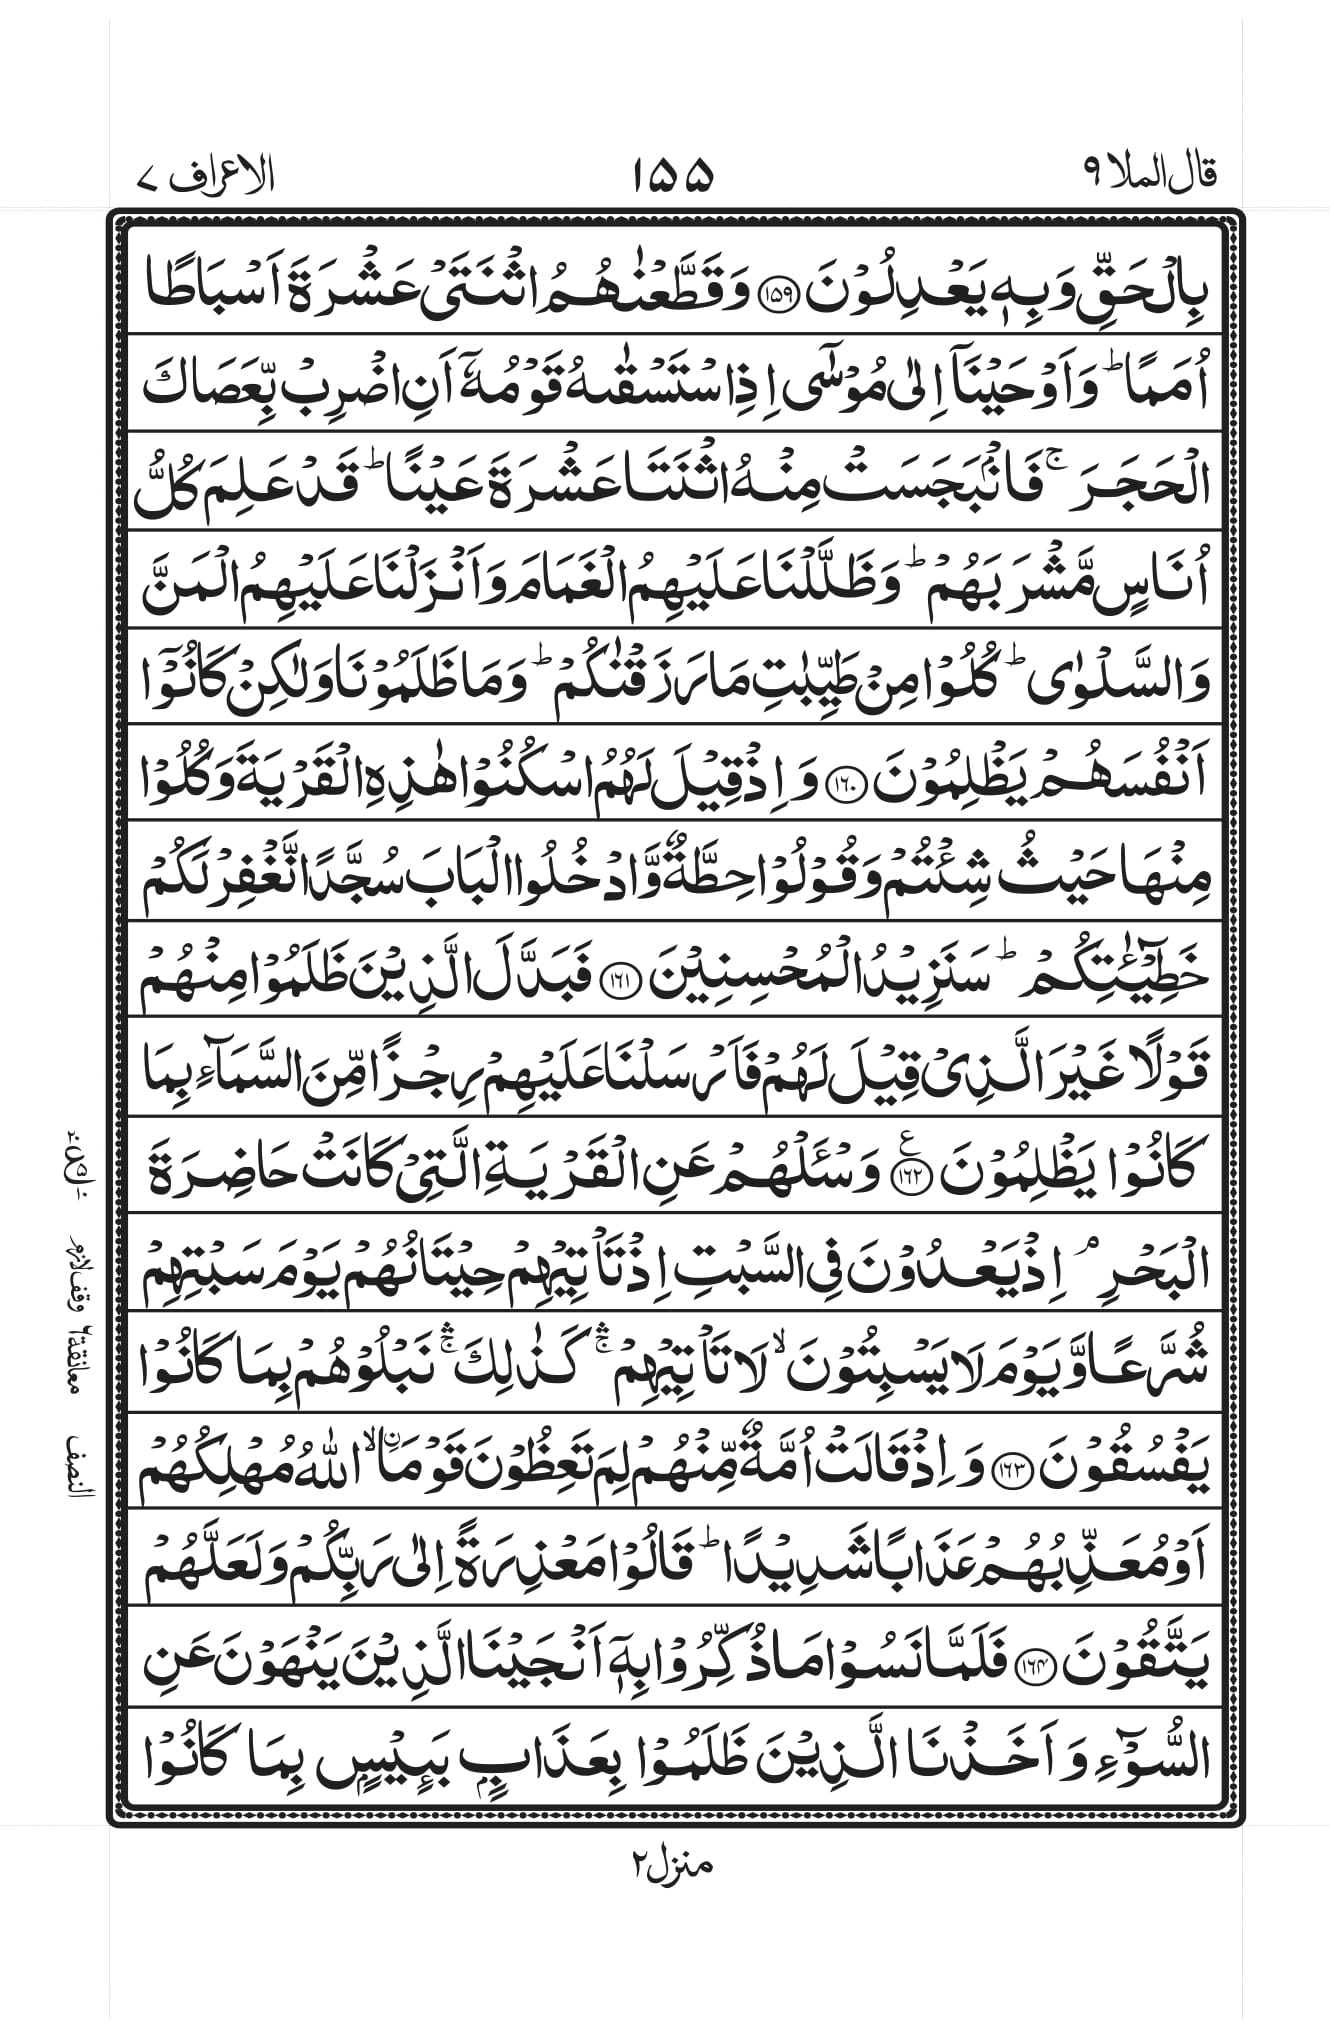 قال الملا ٩
١٥٥
الاعراف ٧
بِالۡحَقِّ وَبِهٖ يَعۡدِلُوۡنَ ﴿۱۵۹﴾ وَقَطَّعۡنٰهُمُ اثۡنَتَىۡ عَشۡرَةَ اَسۡبَاطًا
اُمَمًا‌ ؕ وَاَوۡحَيۡنَاۤ اِلٰى مُوۡسٰٓى اِذِ اسۡتَسۡقٰٮهُ قَوۡمُهٗۤ اَنِ اضۡرِبْ بِّعَصَاكَ
الۡحَجَرَ‌ ۚ فَانْۢبَجَسَتۡ مِنۡهُ اثۡنَتَا عَشۡرَةَ عَيۡنًا‌ ؕ قَدۡ عَلِمَ كُلُّ
اُنَاسٍ مَّشۡرَبَهُمۡ‌ ؕ وَظَلَّلۡنَا عَلَيۡهِمُ الۡغَمَامَ وَاَنۡزَلۡنَا عَلَيۡهِمُ الۡمَنَّ
وَالسَّلۡوٰى‌ ؕ كُلُوۡا مِنۡ طَيِّبٰتِ مَا رَزَقۡنٰكُمۡ‌ ؕ وَمَا ظَلَمُوۡنَا وَلٰكِنۡ كَانُوۡۤا
اَنۡفُسَهُمۡ يَظۡلِمُوۡنَ ﴿۱۶۰﴾ وَاِذۡ قِيۡلَ لَهُمُ اسۡكُنُوۡا هٰذِهِ الۡقَرۡيَةَ وَكُلُوۡا
مِنۡهَا حَيۡثُ شِئۡتُمۡ وَقُوۡلُوۡا حِطَّةٌ وَّادۡخُلُوا الۡبَابَ سُجَّدًا نَّغۡفِرۡ لَكُمۡ
خَطِيْٓــٰٔــتِكُمۡ‌ ؕ سَنَزِيۡدُ الۡمُحۡسِنِيۡنَ ﴿۱۶۱﴾ فَبَدَّلَ الَّذِيۡنَ ظَلَمُوۡا مِنۡهُمۡ
قَوۡلًا غَيۡرَ الَّذِىۡ قِيۡلَ لَهُمۡ فَاَرۡسَلۡنَا عَلَيۡهِمۡ رِجۡزًا مِّنَ السَّمَآءِ بِمَا
كَانُوۡا يَظۡلِمُوۡنَ ﴿۱۶۲﴾ ع وَسۡـَٔلۡهُمۡ عَنِ الۡقَرۡيَةِ الَّتِىۡ كَانَتۡ حَاضِرَةَ
الۡبَحۡرِ‌ ۘ اِذۡ يَعۡدُوۡنَ فِى السَّبۡتِ اِذۡ تَاۡتِيۡهِمۡ حِيۡتَانُهُمۡ يَوۡمَ سَبۡتِهِمۡ
شُرَّعًا وَّيَوۡمَ لَا يَسۡبِتُوۡنَ‌ ۙ لَا تَاۡتِيۡهِمۡ‌ ۛۚ كَذٰلِكَ ۛۚ نَبۡلُوۡهُمۡ بِمَا كَانُوۡا
يَفۡسُقُوۡنَ ﴿۱۶۳﴾ وَاِذۡ قَالَتۡ اُمَّةٌ مِّنۡهُمۡ لِمَ تَعِظُوۡنَ قَوۡمَا‌ۨ ۙ اللّٰهُ مُهۡلِكُهُمۡ
اَوۡ مُعَذِّبُهُمۡ عَذَابًا شَدِيۡدًا‌ ؕ قَالُوۡا مَعۡذِرَةً اِلٰى رَبِّكُمۡ وَلَعَلَّهُمۡ
يَتَّقُوۡنَ ﴿۱۶۴﴾ فَلَمَّا نَسُوۡا مَا ذُكِّرُوۡا بِهٖۤ اَنۡجَيۡنَا الَّذِيۡنَ يَنۡهَوۡنَ عَنِ
السُّوۡٓءِ وَاَخَذۡنَا الَّذِيۡنَ ظَلَمُوۡا بِعَذَابٍۢ بَــِٕيۡسٍۢ بِمَا كَانُوۡا
وقف لازم
معانقة ٦
النصف
منزل ٢